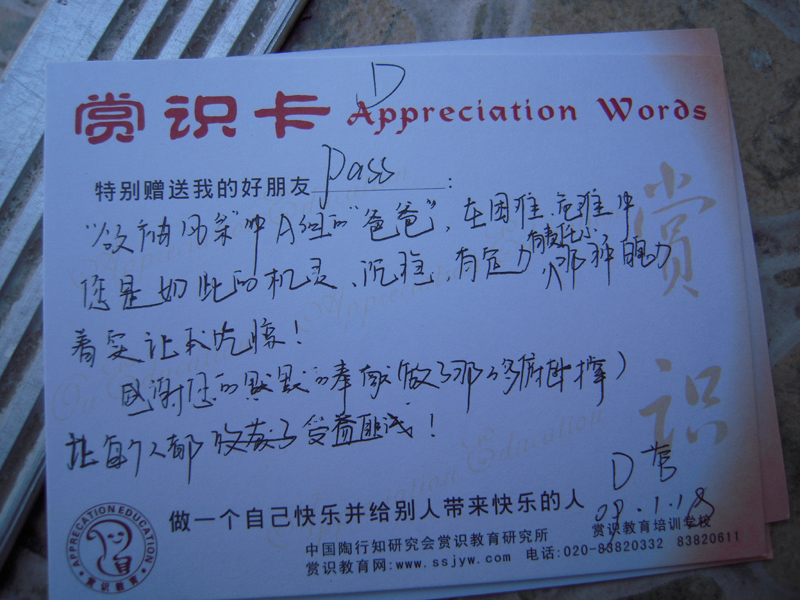 D
赏识卡 Appreciation Words
特别赠送我的好朋友 pass :
中A组的"爸爸", 在困难、危难中
您是如此的机灵、沉稳, 有定力 有责任心 那种魄力
着实让我吃惊!
感谢您的"默默"的奉献(做了那么多俯卧撑)
让每个人都收获了受益匪浅!
D营
09.1.18
做一个自己快乐并给别人带来快乐的人
中国陶行知研究会赏识教育研究所 赏识教育培训学校
赏识教育网:www.ssjyw.com 电话:020-83820332 83820611
APPRECATION EDUCATION
赏识教育
赏识